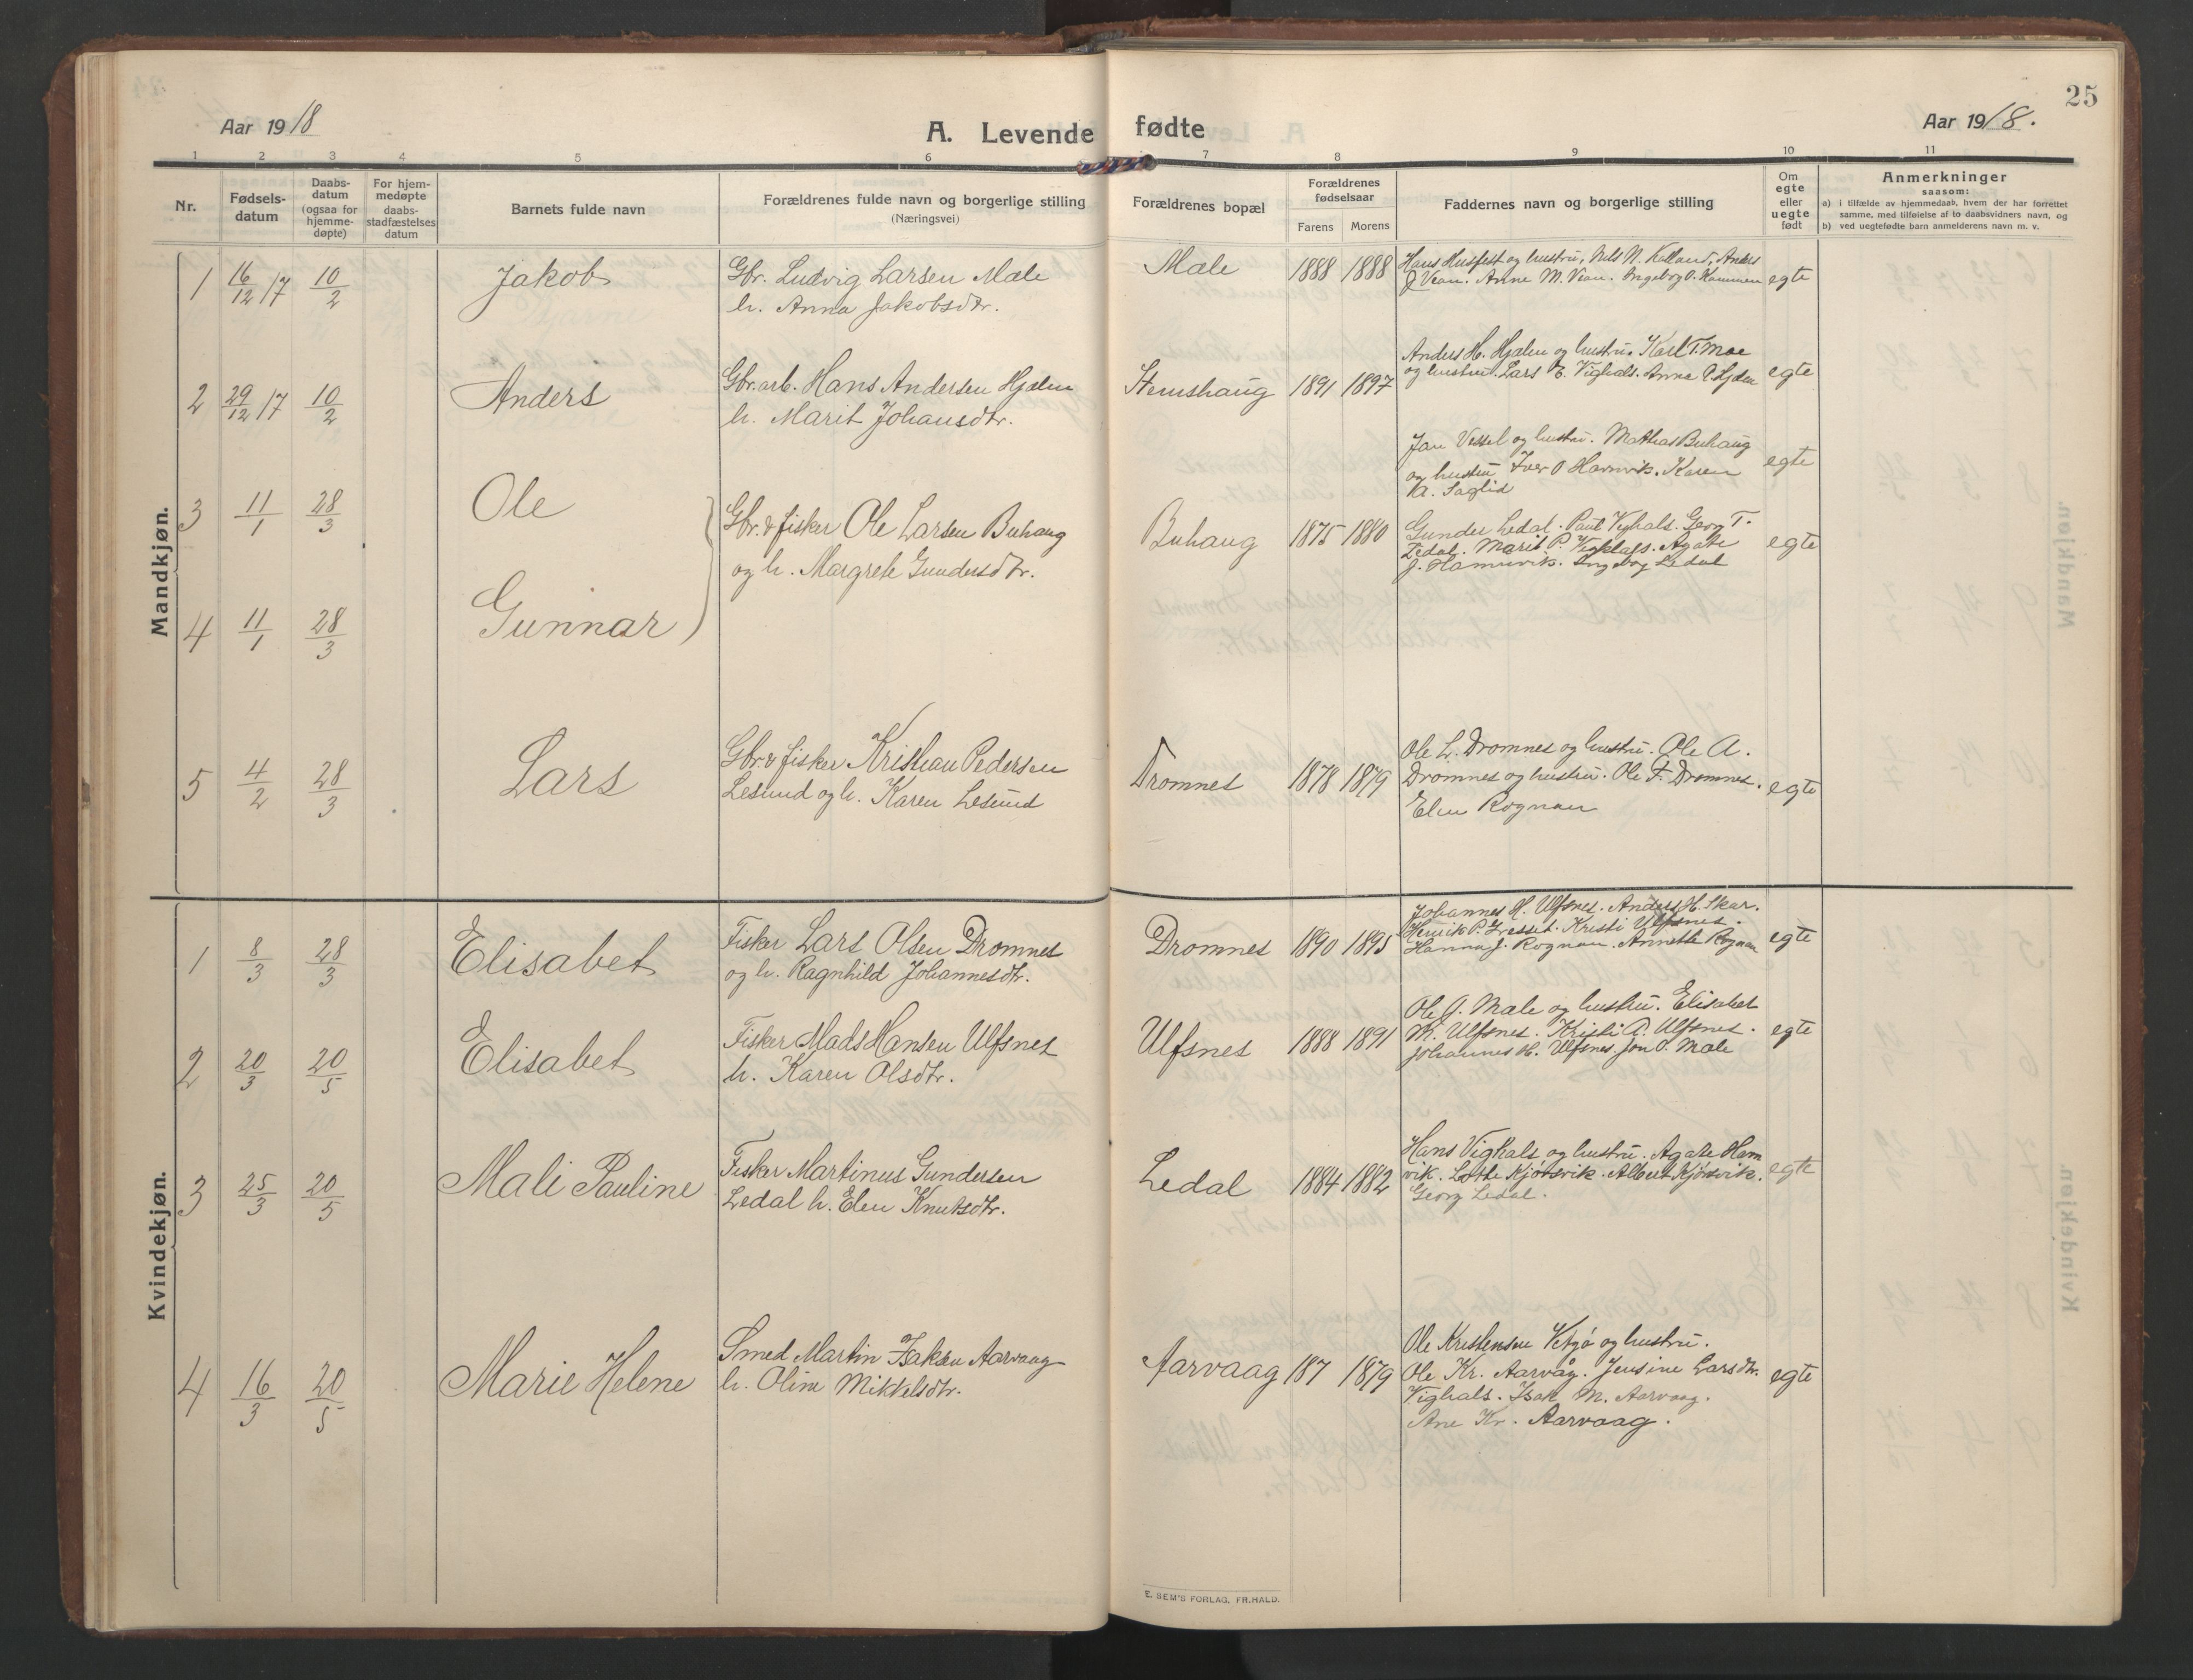 25
Aar 1918
A. Levende fødte
Aar 1918.
1 2 3 4 5 6 7 8 9 10 11
Nr.
Fødsels-
datum
Daabs-
datum
(ogsaa for
hjemme-
døpte)
For hjem-
medøpte
daabs-
stadfæstelses
datum
Barnets fulde navn
Forældrenes fulde navn og borgerlige stilling
(Næringsvei)
Forældrenes bopæl
Forældrenes
fødselsaar
Farens Morens
Faddernes navn og borgerlige stilling
Om
egte
eller
uegte
født
Anmerkninger
saasom:
a) i tilfælde av hjemmedaab, hvem der har forrettet
samme, med tilføielse af to daabsvidners navn, og
b) ved uegtefødte barn anmelderens navn m. v.
Mandkjøn.
1 16/12 17 10/2 Jakob
Gbr. Ludvig Larsen Mæle
h. Anna Jakobsdtr.
Male 1888 1888
Hans Husfest og hustru, Nils N. Kalland, Anders
J Vean. Anne M. Vean. Ingeborg O. Kammen
egte
2 29/12 17 10/2 Anders
Gbr.arb. Hans Andersen Hjælm
h. Marit Johansdtr.
Stemshaug 1891 1897
Anders H. Hjælen og hustru. Karl T. Moe
og hustru. Lars E. Vighals. Anna
egte
3 11/1 28/3 Ole
4 11/1 28/3 Gunnar
Gbr. & fisker Ole Larsen Buhaug
og h. Margrete Gundersdtr.
Buhaug 1875 1880
Jan Vessel og hustru. Mathias Buhaug
og hustru Iver O Hamnvik. Karen
A. Saglid
egte
Gunder Ledal. Paul Vighals. Georg T.
Ledal. Marit P. Vighals. Agate
J. Hamnvik. Ingeborg Ledal
egte
5 4/2 28/3 Lars
Gbr. & fisker Kristian Pedersen
Lesund og h. Karen Lesund
Dromnes 1878 1879
Ole L. Dromnes og hustru. Ole A.
Dromnes og hustru. Ole F. Dromnes.
Elen Rognan
egte
Kvindekjøn.
1 8/3 28/3 Elisabet
Fisker Lars Olsen Dromnes
og h. Ragnhild Johannesdtr.
Dromnes 1890 1895
Johannes H. Ulfsnes. Anders H. Skar.
Henrik P. Gresset. Kristi Ulfsnes.
Hanna J. Rognan. Annette Rognan
egte
2 20/3 20/5 Elisabet
Fisker Mads Hansen Ulfsnes
h. Karen Olsdtr.
Ulfsnes 1888 1891
Ole J. Male og hustru. Elisabet
M. Ulfsnes. Kristi A. Ulfsnes.
Johannes H. Ulfsnes. Jon O. Male
egte
3 25/3 20/5 Mali Pauline
Fisker Martinus Gundersen
Ledal h. Elen Knutsdtr.
Ledal 1884 1882
Hans Vighals og hustru. Agate Ham
vik. Lotte Kjørsvik. Albert Kjørsvik.
Georg Ledal.
egte
4 16/3 20/5 Marie Helene
Smed Martin Isaksen Aarvaag
h. Oline Mikkelsdtr.
Aarvaag 187 1879
Ole Kristensen Vettgø og hustru.
Ole Kr. Aarvåg. Jensine Larsdtr.
Vighals. Isak M. Aarvaag.
Ane Kr. Aarvaag.
egte
E. SEM'S FORLAG, FR.HALD.